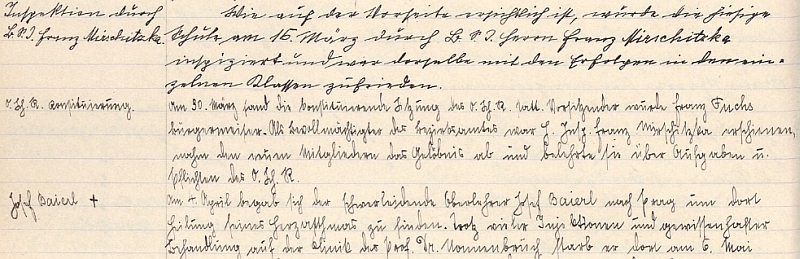 Inspektion durch
B.S.I. Franz Mirschitzka.
Wie auf der Vorseite ersichtlich ist, wurde die hiesige
Schule am 16. März durch B.S.I. Herrn Franz Mirschitzka
inspiziert und war derselbe mit den Erfolgen in den ein=
zelnen Klassen zufrieden.
O.Sch.R. Konstituierung.
Am 30. März fand die konstituierende Sitzung des O.Sch.R. statt. Vorsitzender wurde Franz Fuchs
Bürgermeister. Als Bevollmächtigter des Bezirksamtes war H. Insp. Franz Mirschitzka erschienen,
nahm den neuen Mitgliedern das Gelöbnis ab und belehrte sie über Aufgaben u.
Pflichten des O.Sch.R.
Josef Baierl +
Am 4. April begab sich der schwerleidende Oberlehrer Josef Baierl nach Prag um dort
Heilung seines Herzasthmas zu finden. Trotz vieler Injektionen und gewissenhafter
Behandlung auf der Klinik des Prof. Dr. Nonnenbruch starb er dort am 6. Mai